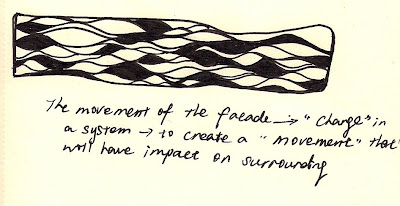 The movement of the facade → "Change" in
a system → to create a "movement" that
will have impact on surrounding